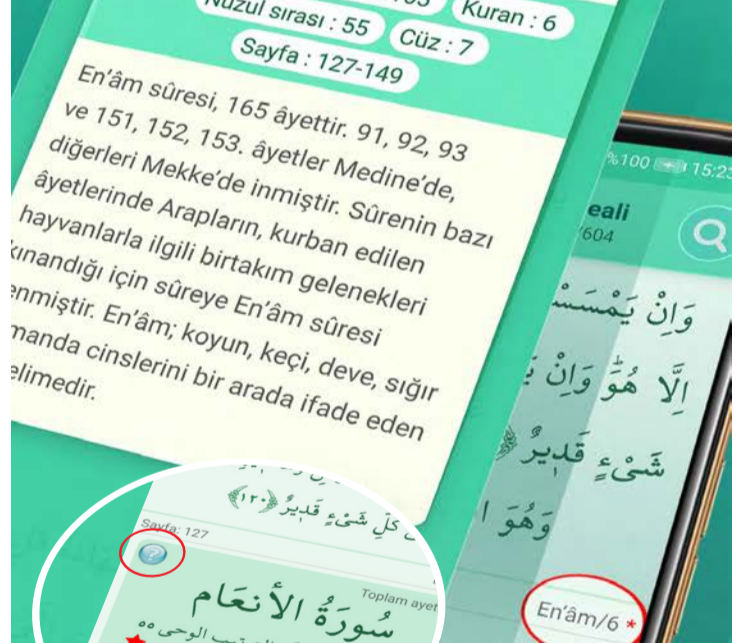 Kuran : 6
Nüzul sırası : 55
Cüz : 7
Sayfa : 127-149
En'âm sûresi, 165 âyettir. 91, 92, 93
ve 151, 152, 153. âyetler Medine'de,
diğerleri Mekke'de inmiştir. Sûrenin bazı
âyetlerinde Arapların, kurban edilen
hayvanlarla ilgili birtakım gelenekleri
kınandığı için sûreye En'âm sûresi
enmiştir. En'âm; koyun, keçi, deve, sığır
manda cinslerini bir arada ifade eden
elimedir.
%100 15:23
eali
/604
وَاِنْ يَمْسَسْ
اِلَّا هُوَۜ وَاِنْ
شَیْءٍ قَد۪يرٌ
وَهُوَ ا
En'âm/6 *
كُلِّ شَيْءٍ قَد۪يرٌ ﴿١٢٠﴾
Sayfa: 127
Toplam ayet
سُورَةُ الأَنعَام
الوحى ٥٥